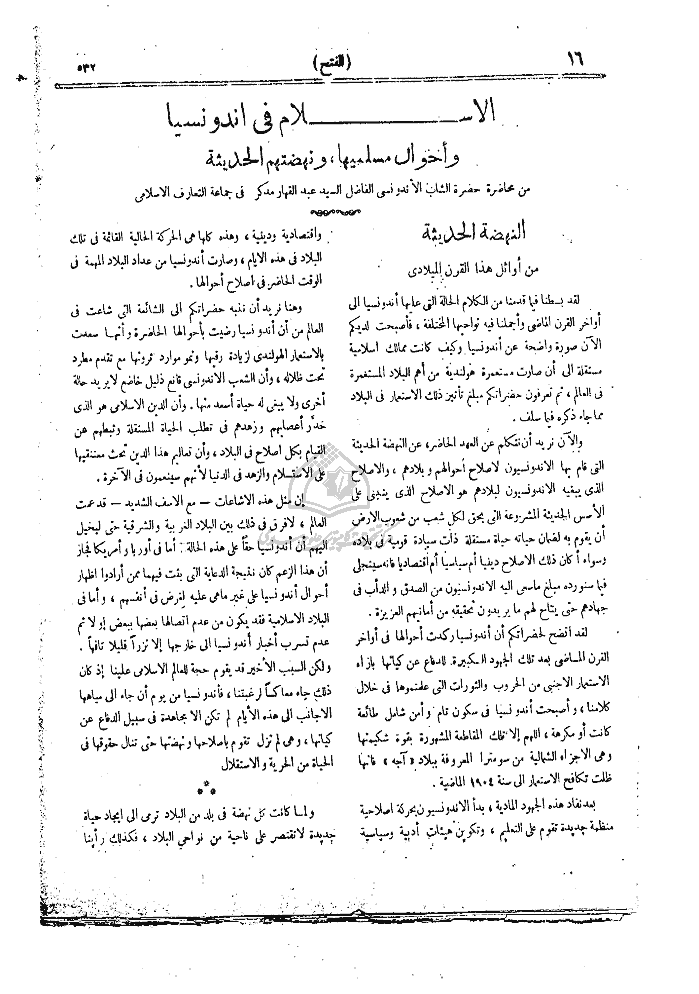 ١٦
(الفتح)
٥٣٢
الاســــــلام فى اندونسيا
وأحوال مسلميها، ونهضتهم الحديثة
من محاضرة حضرة الشاب الأندونسى الفاضل السيد عبد القهار مدكر فى جماعة التعارف الاسلامى
النهضة الحديثة
من أوائل هذا القرن الميلادى
لقد بسطنا فيما قدمنا من الكلام الحالة التى عليها أندونسيا الى
أواخر القرن الماضى وأجملنا فيه نواحيها المختلفة ، فأصبحت لديكم
الآن صورة واضحة عن أندونسيا وكيف كانت ممالك اسلامية
مستقلة الى أن صارت مستعمرة هولندية من أهم البلاد المستعمرة
فى العالم ، ثم تعرفون حضراتكم مبلغ تأثير ذلك الاستعمار فى البلاد
مما جاء ذكره فيما سلف .
والآن نريد أن نتكلم عن العهد الحاضر، عن النهضة الحديثة
التى قام بها الاندونسيون لاصلاح أحوالهم وبلادهم ، والاصلاح
الذى يبغيه الاندونسيون لبلادهم هو الاصلاح الذى ينبنى على
الأسس الحديثة المشروعة التى يحق لكل شعب من شعوب الارض
أن يقوم به لضمان حياته حياة مستقلة ذات سيادة قومية فى بلاده
وسواء أكان ذلك الاصلاح دينيا أم سياسيا أم اقتصاديا فانه سينجلى
فيما سنورده مبلغ ماسعى اليه الاندونسيون من الصدق و الدأب فى
جهادهم حتى يتاح لهم ما يريدون تحقيقه من أمانيهم العزيزة .
لقد اتضح لحضراتكم أن أندونسيا ركدت أحوالها فى أواخر
القرن الماضى بعد تلك الجهود الكبيرة للدفاع عن كيانها بازاء
الاستعمار الاجنبى من الحروب والثورات التى علمتموها فى خلال
كلامنا ، وأصبحت أندونسيا فى سكون تام وأمن شامل طائعة
كانت أو مكرهة ، اللهم إلا تلك المقاطعة المشهورة بقوة شكيمتها
وهى الاجزاء الشمالية من سومترا المعروفة ببلاد « آجه » فانها
ظلت تكافح الاستعمار الى سنة ١٩٠٤ الماضية .
بعد نفاد هذه الجهود المادية ، بدأ الاندونسيون بحركة اصلاحية
منظمة جديدة تقوم على التعليم ، وتكوين هيئات أدبية وسياسية
واقتصادية ودينية ، وهذه كلها هى الحركة الحالية القائمة فى تلك
البلاد فى هذه الايام ، وصارت أندونسيا من عداد البلاد المهمة فى
الوقت الحاضر فى اصلاح أحوالها .
وهنا نريد أن ننبه حضراتكم الى الشائعة التى شاعت فى
العالم من أن أندونسيا رضيت بأحوالها الحاضرة وأنها سعدت
بالاستعمار الهولندى لزيادة رقيها ونمو موارد ثروتها مع تقدم مطرد
تحت ظلاله ، وأن الشعب الاندونسى قانع ذليل خاضع لا يريد حالة
أخرى ولا يبغى له حياة أسعد منها . وأن الدين الاسلامى هو الذى
خدّر أعصابهم وزهدهم فى تطلب الحياة المستقلة وثبطهم عن
القيام بكل اصلاح فى البلاد ، وأن تعاليم هذا الدين تحث معتنقيها
على الاستسلام والزهد فى الدنيا لأنهم سينعمون فى الآخرة .
إن مثل هذه الاشاعات — مع الاسف الشديد — قد عمت
العالم ، لافرق فى ذلك بين البلاد الغربية والشرقية حتى ليخيل
اليهم أن أندونسيا حقاً على هذه الحالة : أما فى أوربا وأمريكا فجاز
أن هذا الزعم كان نتيجة الدعاية التى بثت فيهما ممن أرادوا اظهار
أحوال أندونسيا على غير ماهى عليه لغرض فى أنفسهم ، وأما فى
البلاد الاسلامية فقد يكون من عدم اتصالها بعضها ببعض إو لا ثم
عدم تسرب أخبار أندونسيا الى خارجها إلا نزراً قليلا تافهاً .
ولكن السبب الأخير قد يقوم حجة للعالم الاسلامى علينا إذ كان
ذلك جاء معاكساً لرغبتنا ، فأندونسيا من يوم أن جاء الى مياهها
الاجانب الى هذه الأيام لم تكن الا مجاهدة فى سبيل الدفاع عن
كيانها ، وهى لم تزل تقوم باصلاحها ونهضتها حتى تنال حقوقها فى
الحياة من الحرية والاستقلال
***
ولما كانت كل نهضة فى بلد من البلاد ترمى الى ايجاد حياة
جديدة لاتقتصر على ناحية من نواحى البلاد ، فكذلك رأينا